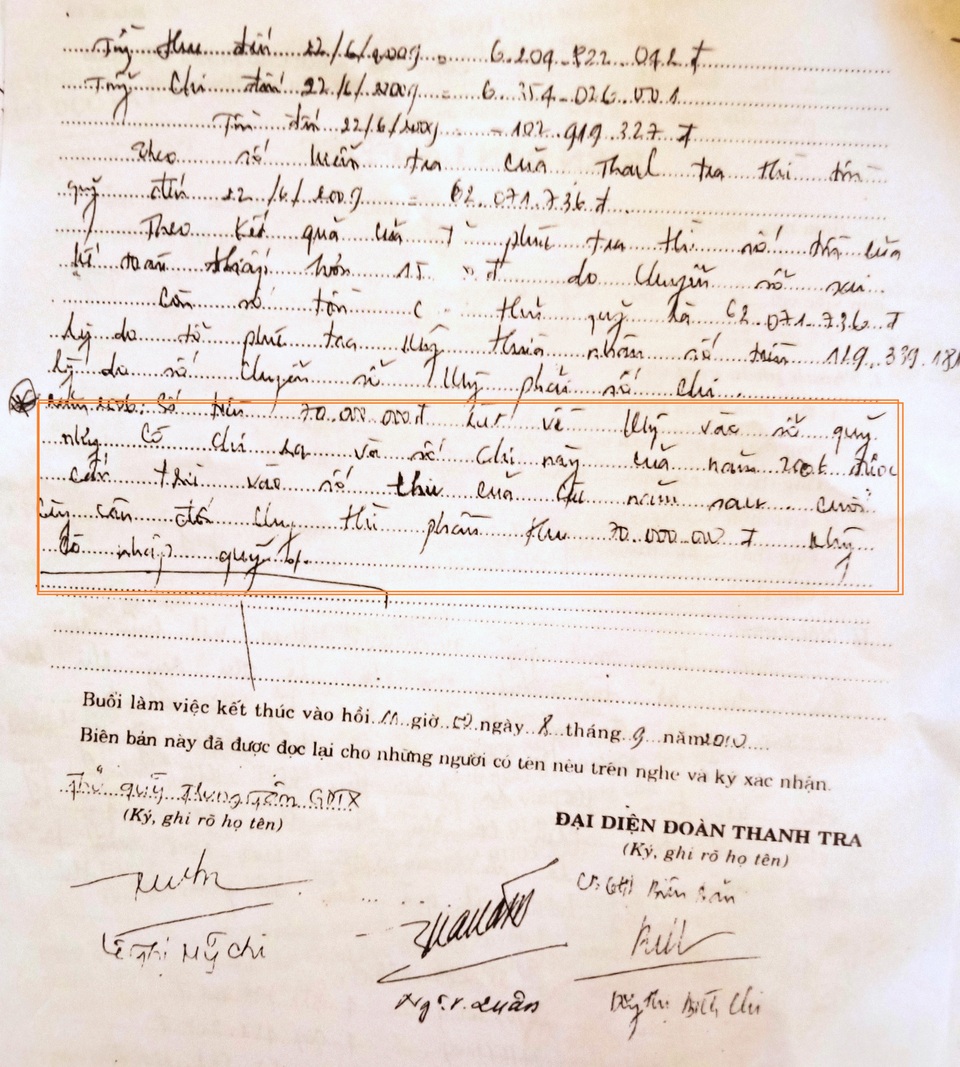 Tổng thu đến 22/6/2009 = 6.209.822.042 đ
Tổng chi đến 22/6/2009 = 6.354.026.001
Tồn đến 22/6/2009 = -102.919.327 đ
Theo số luân tra của Thanh tra thì tồn
quỹ đến 22/6/2009 = 62.071.736 đ.
Theo kết quả của tổ phúc tra thì số tồn của
kế toán thấp hơn 15 đ do chuyển sổ sai.
Còn số tồn thủ quỹ là 62.071.736 đ
Lý do tổ phúc tra không thừa nhận số tiền 119.339.181
Lý do số chuyển sổ không phải số chi.
Năm 2006: Số tiền 70.000.000đ rút về không vào sổ quỹ
nhưng có chi ra và số chi này của năm 2006 được
cấn trừ vào số thu của các năm sau. cuối
cùng cân đối chung thì phần thu 70.000.000 đ không
có nhập quỹ.
Buổi làm việc kết thúc vào hồi 11 giờ 00 ngày 8 tháng 9 năm 2010
Biên bản này đã được đọc lại cho những người có tên nêu trên nghe và ký xác nhận.
Thủ quỹ Trung tâm GDTX
(Ký, ghi rõ họ tên)
ĐẠI DIỆN ĐOÀN THANH TRA
(Ký, ghi rõ họ tên)
Người ghi Biên bản
Lê Thị Mỹ Chi
Ng. V. Quân
Bích Chi